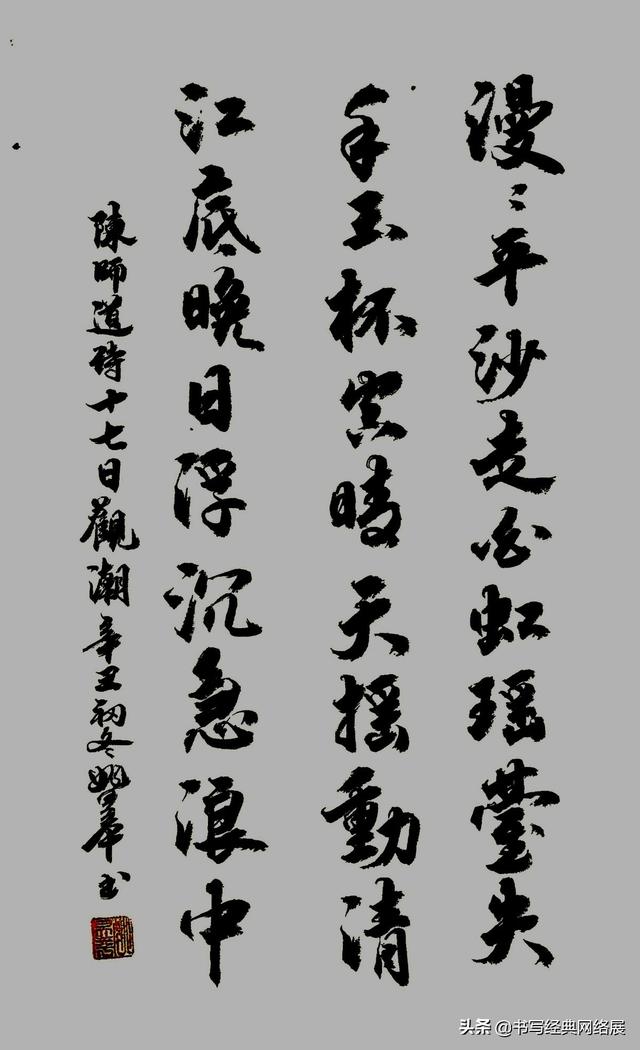 漫〻平沙走白虹瑶臺失
手玉杯空晴天摇動清
江底晚日浮沉急浪中
陳師道詩十七日觀潮辛丑初冬姚书
头条 @书写经典网络展